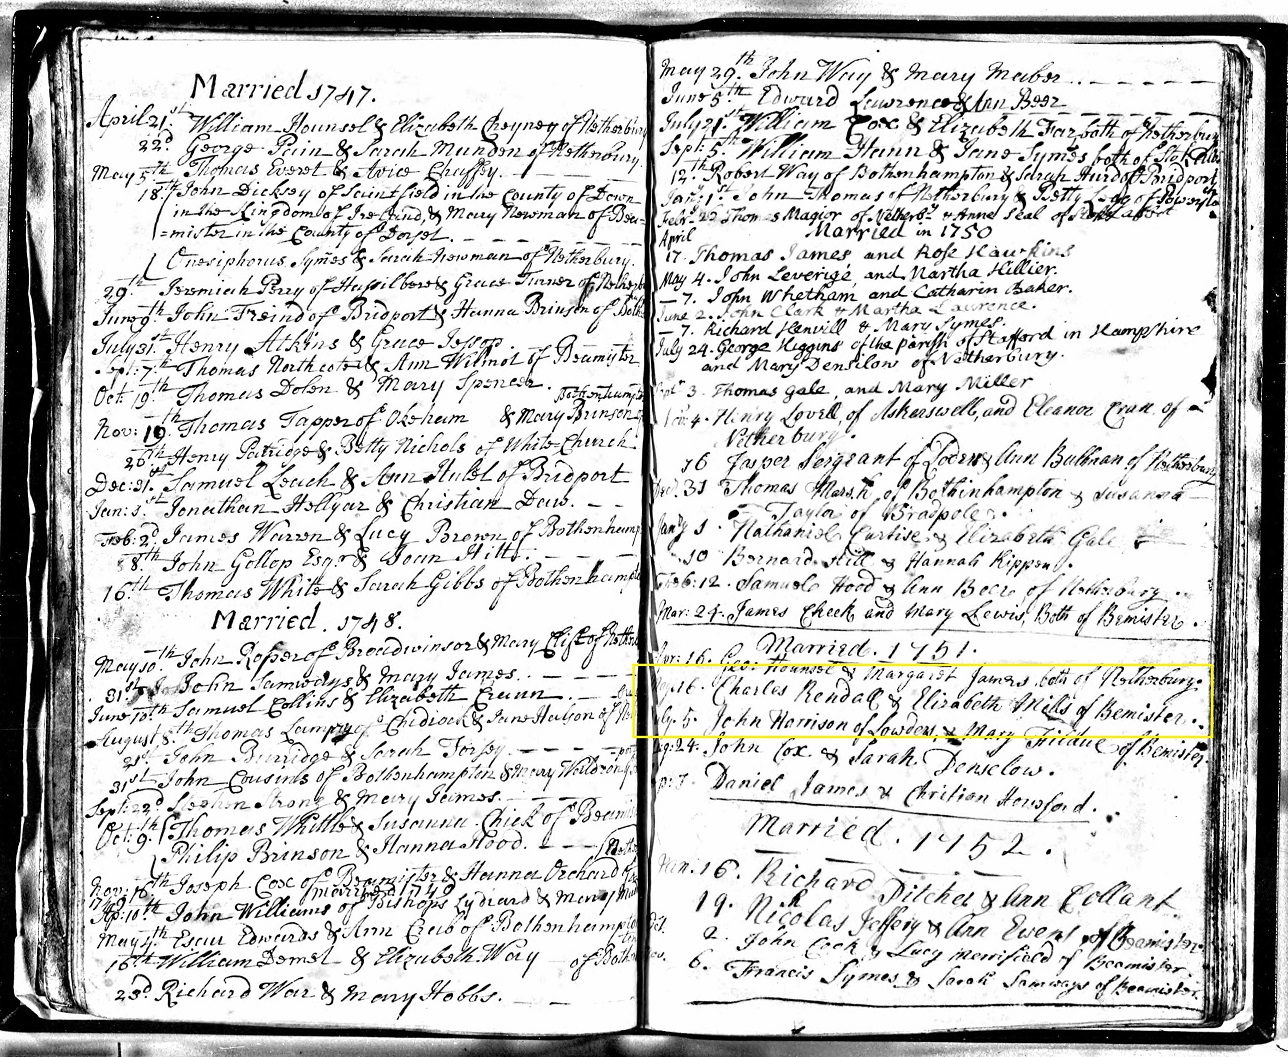 Married 1747.
April 21st William Hounsel & Elizabeth Cheyney of Netherbury
22d George Pain & Sarah Munden of Netherbury
May 5th Thomas Everet & Avice Chaffey.
18th John Dicksey of Saintfield in the County of Down
in the Kingdom of Ireland, & Mary Newman of Bea=
=mister in the County of Dorset.
Onesiphorus Symes & Sarah Newman of Netherbury.
29th Jeremiah Perry of & Grace Turner of
June 9th John Freind of Bridport & Hanna Brinson of Both
July 31st Henry Atkins & Grace Jesop.
Sept: 7th Thomas Northcote & Ann Wilmot of Beamister
Oct: 19th Thomas Dolen & Mary Spencer.
Nov: 10th Thomas Tapper of Okeham & Mary Brinson of
26th Henry Patridge & Betty Nichols of White-Church
Dec: 31st Samuel Leach & Ann Hulet of Bridport
Jan: 1st Jonathan Hellyar & Christian Daw.
Feb: 2d James Warren & Lucy Brown of Bothenhamp
8th John Gollop Esqr & Joan Hitt.
16th Thomas White & Sarah Gibbs of Bothenhampt
Married. 1748.
May 10th John Roper of Broadwinsor & Mary of Nethe
31st John Samways & Mary James.
June 13th Samuel Collins & Elizabeth Crann.
August 8th Thomas of Chidiock & Jane of
21st John Burridge & Sarah
31st John Cousins of Bothenhampton & Mary
Sept: 22d Stephen Strong & Mary Jeames.
Oct: 9th Thomas Whittle & Susanna Chick of Beami
Philip Brinson & Hanna Hood.
Nov: 16th Joseph Cox of Beamister & Hanna Orchard of
married 1749
1749 Ap: 10th John Williams of Bishops Lydiard & Mary
May 4th Esau Edwards & Ann Crab of Bothenhampton
16th William Demet & Elizabeth Way of Both
23d Richard War & Mary Hobbs.
May 29th John Way & Mary Maber
June 5th Edward Lawrence & Ann Beer
July 21st William Cox & Elizabeth Far both of Netherbury
Sept: 5th William Hann & Jane Symes both of Stok
12th Robert Way of Bothenhampton & Sarah Hurd of Bridport
Jany 1st John Thomas of Netherbury & Betty Legg of
Feb: 22 Thomas Magior of Netherby & Anne Seal of
Married in 1750
April
17. Thomas James and Rose Hawkins
May 4. John Leverige, and Martha Hillier.
— 7. John Whetham and Catharin Baker.
June 2. John Clark & Martha Lawrence.
— 7. Richard Hanvill & Mary Symes.
July 24. George Higgins of the parish of Stafford in Hampshire
and Mary Densilow of Netherbury.
3. Thomas Gale, and Mary Miller
4. Henry Lovell, of Askerswell, and Eleanor Cran of
Netherbury.
16 Jasper Sergeant of Loders & Ann Bullman of Netherbury
31 Thomas Marsh of Bothinhampton & Susanna
Taylor of Bradpole.
Janry 1. Nathaniel Curtise & Elizabeth Gale
10 Bernard Hill & Hannah Kippen.
Feb: 12. Samuel Hood & Ann of Netherbury.
Mar: 24. James Cheek and Mary Lewis, Both of Bemister.
Married. 1751.
Apr: 16. Geo: Hounsel & Margaret James both of Netherbury.
16. Charles Kendall & Elizabeth Mills of Bemister.
July. 5. John Harrison of Lowders, & Mary of Bemister.
24. John Cox & Sarah Denselow.
7. Daniel James & Christian Housford.
Married. 1752.
Jan. 16. Richard Pitcher & Ann Collant
19. Nicolas Jeffery & Ann Ewens of Beamister
2. John Cock & Lucy Merrifield of Beamister.
6. Francis Symes & Sarah Samways of Beamister.